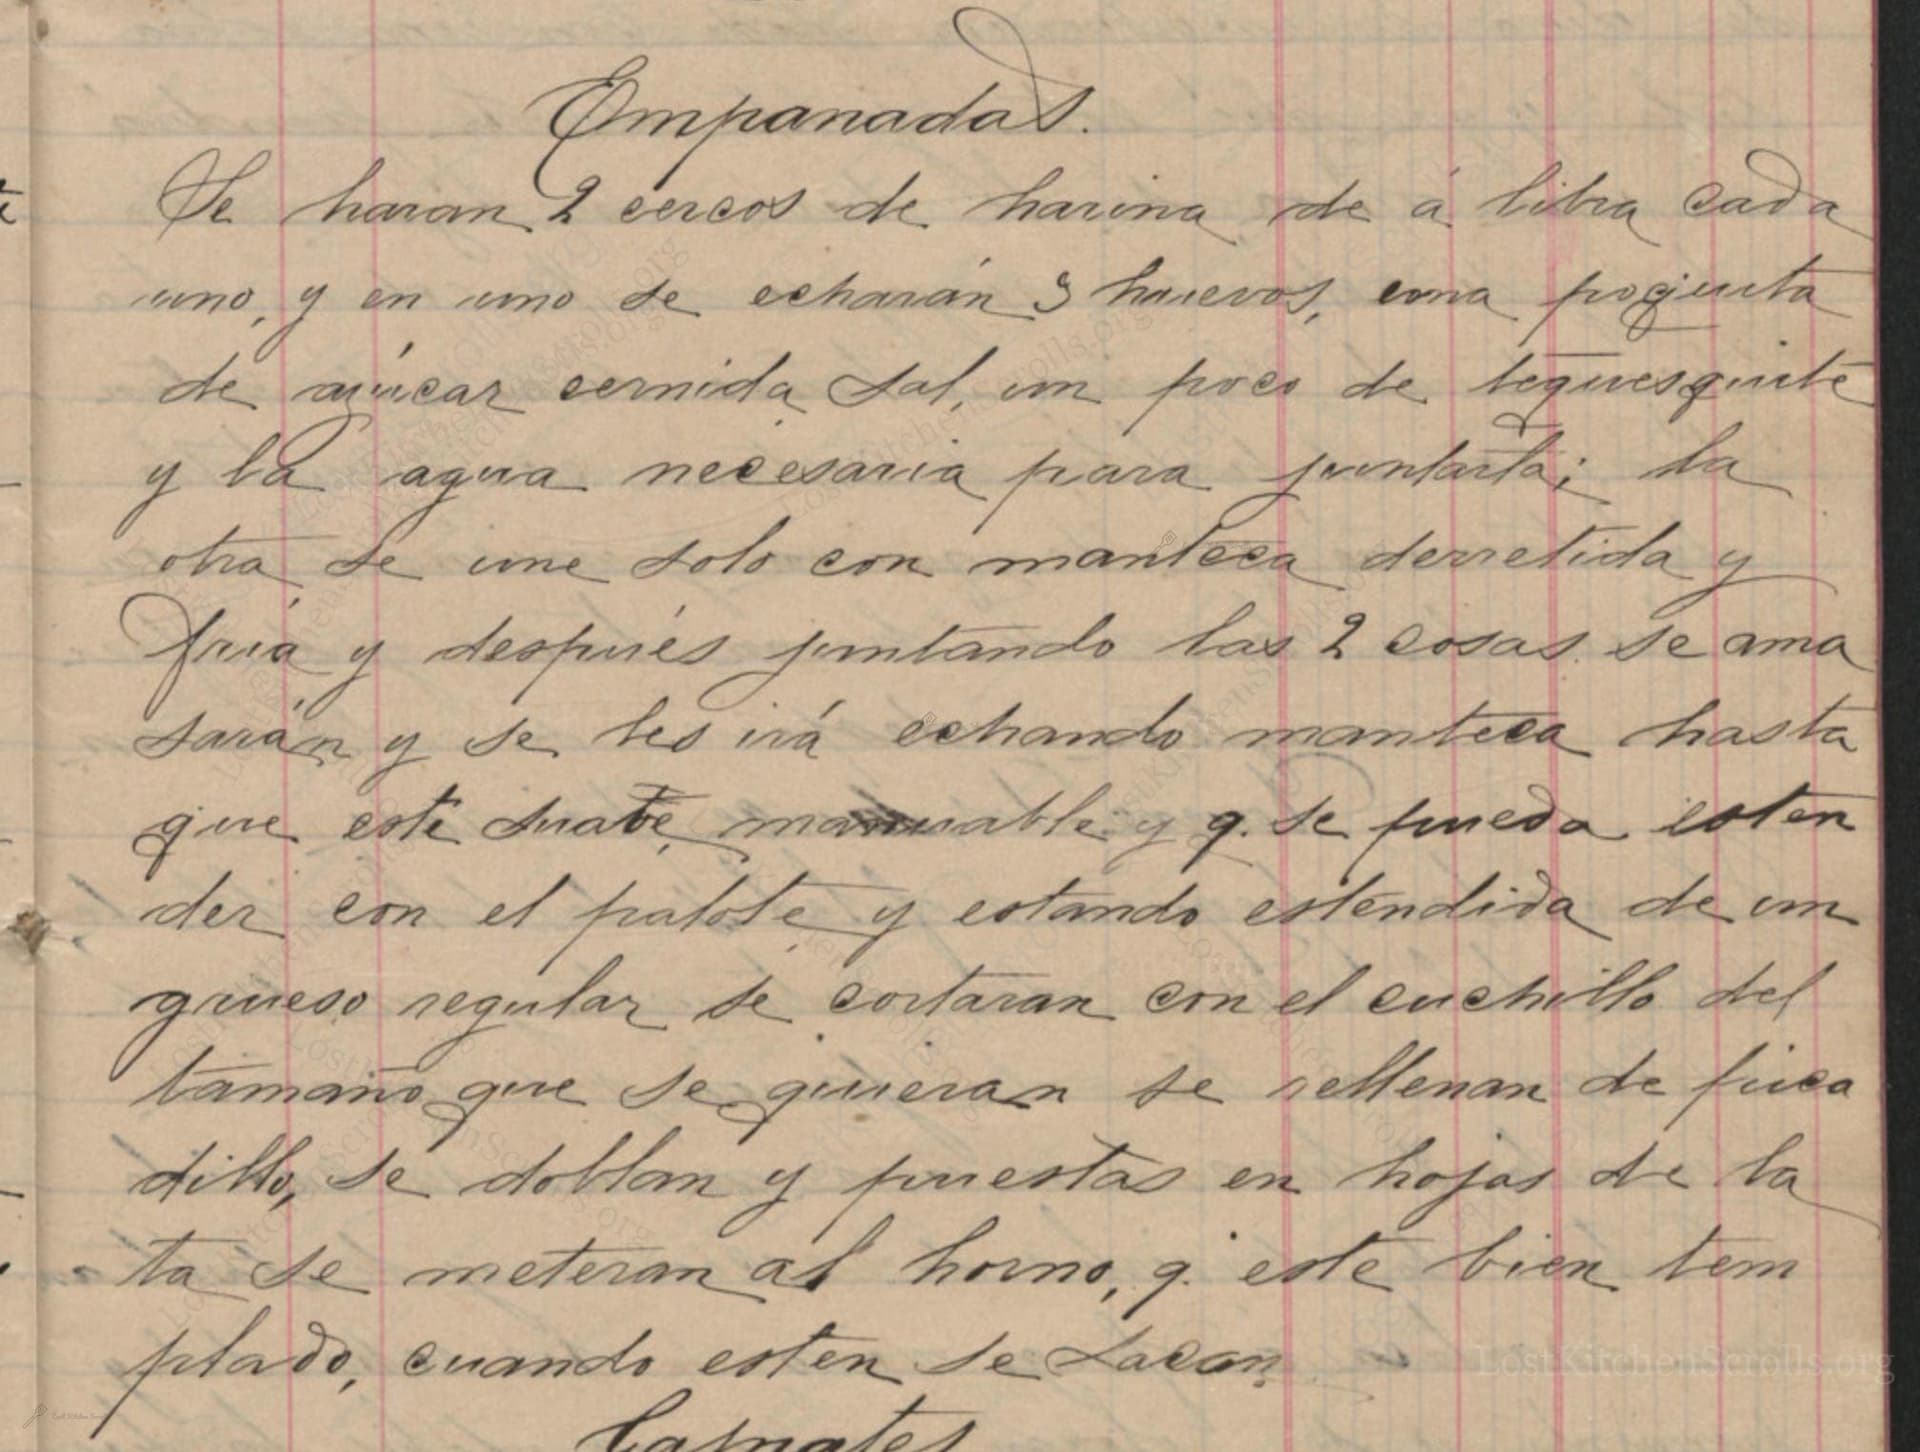 Empanadas.
Se haran 2 cercos de harina de á libra cada
uno, y en uno se echarán 3 huevos, una poquita
de azúcar cernida sal, un poco de tequesquite
y la agua necesaria para juntarla; la
otra se une solo con manteca derretida y
fria y después juntando las 2 cosas se ama
sarán y se les irá echando manteca hasta
que esté suave, manuable y q. se pueda esten
der con el palote y estando estendida de un
grueso regular se cortaran con el cuchillo del
tamaño que se quieran se rellenan de pica
dillo, se doblan y puestas en hojas de la
ta se meteran al horno, q. este bien tem
plado, cuando esten se sacan.
LostKitchenScrolls.org